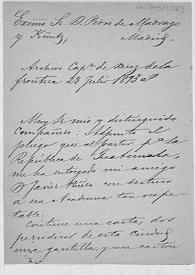 Excmo Sr. D. Pedro de Madrazo
y Küntz,
Madrid.
Archivo Capr. de Jerez de la
frontera 23 Julio 1893
Muy Sr mio y distinguido
Compañero: Adjunto el
pliego que al partir pa. la
República de Guatemala,
me ha entregado mi amigo
Dn Javier con destino
a esa Academia tan respe
table.
Contiene una carta, dos
periodicos de esta ciudad,
una y un carton